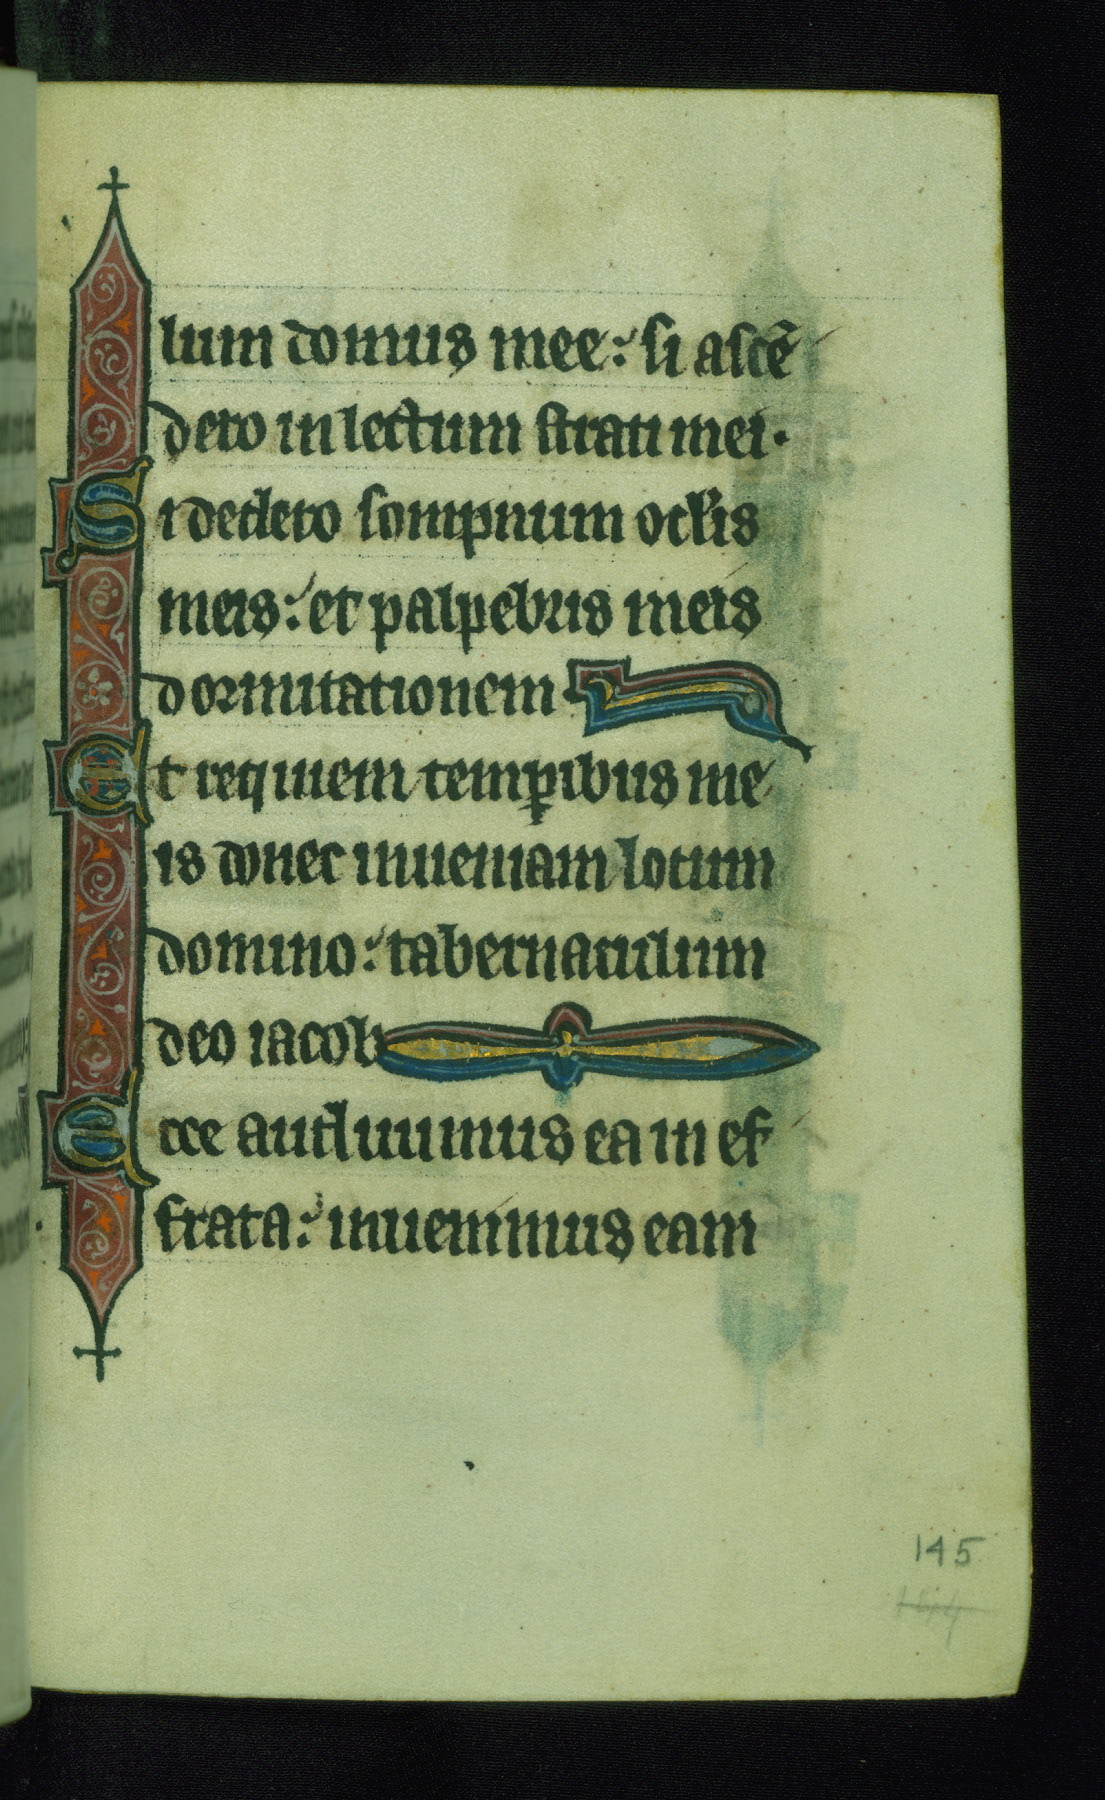 lum domus mee: si ascē
dero in lectum strati mei.
Si dedero sompnum oclis
meis: et palpebris meis
dormitationem
Et requiem temꝑibus me
is donec inueniam locum
domino: tabernaculum
deo iacob
Ecce audiuimus ea in ef
frata: inuenimus eam
145
144